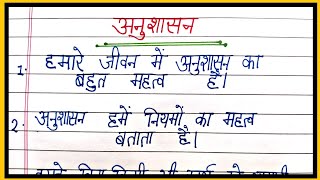 अनुशासन
1. हमारे जीवन में अनुशासन का
बहुत महत्व है।
2. अनुशासन हमें नियमों का महत्व
बताता है।